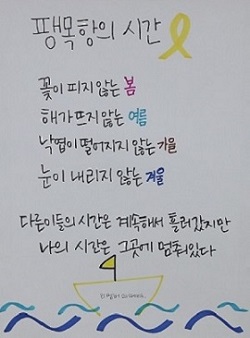 팽목항의 시간
꽃이 피지 않는 봄
해가 뜨지 않는 여름
낙엽이 떨어지지 않는 가을
눈이 내리지 않는 겨울
다른이들의 시간은 계속해서 흘러갔지만
나의 시간은 그곳에 멈춰있다